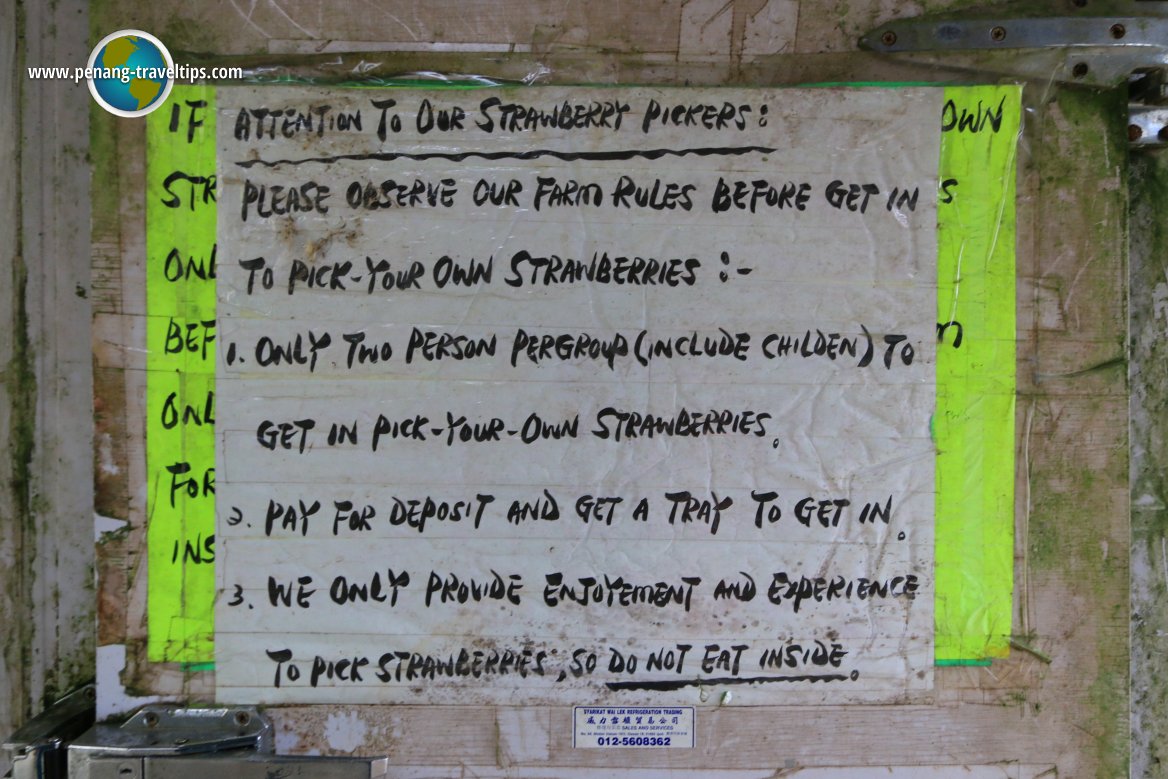 www.penang-traveltips.com
ATTENTION TO OUR STRAWBERRY PICKERS:
PLEASE OBSERVE OUR FARM RULES BEFORE GET IN
TO PICK-YOUR OWN STRAWBERRIES :-
1. ONLY TWO PERSON PERGROUP (INCLUDE CHILDEN) TO
GET IN PICK-YOUR-OWN STRAWBERRIES.
2. PAY FOR DEPOSIT AND GET A TRAY TO GET IN.
3. WE ONLY PROVIDE ENJOYEMENT AND EXPERIENCE
TO PICK STRAWBERRIES, SO DO NOT EAT INSIDE.
IF
OWN
STR
S
ONL
BEF
M
ONL
FOR
INS
SYARIKAT WAI LEK REFRIGERATION TRADING
貿易公司
SALES AND SERVICES
012-5608362